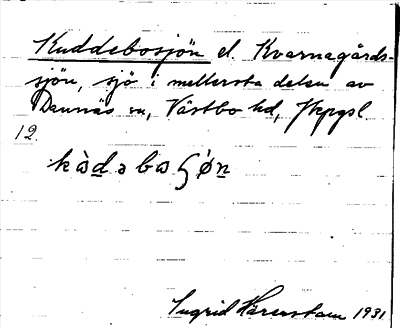 Kuddebosjön el. Kvarnagårds-
sjön, sjö i mellersta delen av
Dannäs sn, Västbo hd, Jkpgsl.
12.
Ingrid Härenstam 1931